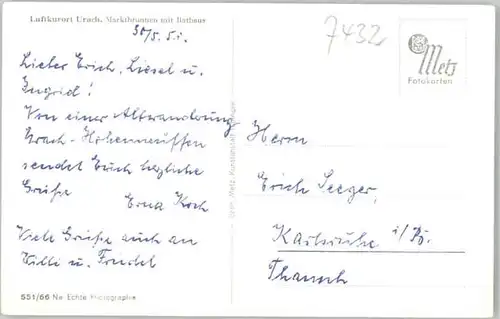 Luftkurort Urach. Marktbrunnen mit Rathaus
30/5. 51.
7432
Metz
Fotokarten
Lieber Erich, Liesel u.
Ingrid!
Von einer Albwanderung
Urach - Hohenneuffen
sendet Euch herzliche
Grüße
Erna Koch
Viele Grüße auch an
Willi u. Friedel
Herrn
Erich Seeger,
Karlsruhe i/B.
Gebr. Metz, Kunstanstalt
551/66 Ne Echte Photographie